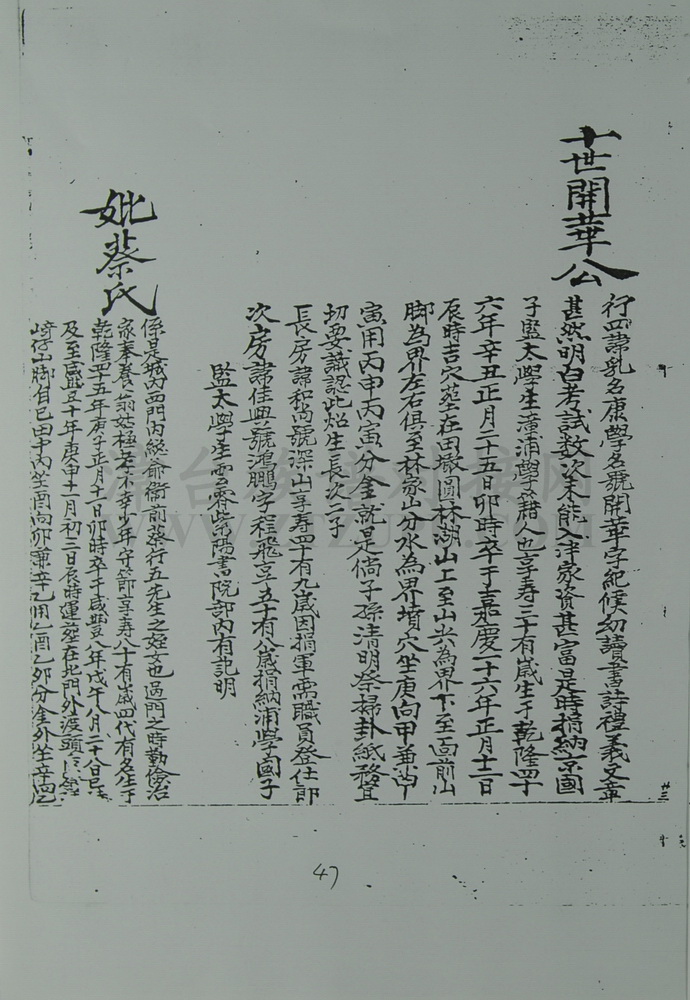 十世開華公
行四諱乳名康學名號開華字紀候幼讀書詩禮義文章
甚然明白考試数次未能入泮家資甚富是時捐納京國
子監太學生漳浦學籍人也享寿三十有歲生于乾隆四十
六年辛丑正月二十五日卯時卒于嘉慶二十六年正月十二日
辰時吉穴葬在田墩圓林湖山上至山尖為界下至面前山
脚為界左右俱至林家山分水為界墳穴坐庚向甲兼
寅用丙申丙寅分金就是倘子孫清明祭掃卦紙務宜
切要識認此始生長次二子
長房諱和尚號深山享寿四十有九歲因捐軍需職員登仕郎
次房諱佳興號鴻鵬字程飛享五十有八歲捐納浦學國子
監太學生雲霄紫陽書院部內有記明
妣蔡氏
係是城內西門內總爺衙前蔡行五先生之姪女也過門之時勤儉治
家奉養翁姑極孝不幸少年守節享寿八十有歲四代有名生于
乾隆四十五年庚子正月十一日卯時卒于咸豐八年戊午八月二十八日巳
及至咸豐十年庚申十一月初三日辰時運葬在北門外渡頭
崎仔山脚自己田中內坐酉向卯兼辛乙用乙酉乙卯分金外坐辛向乙
廿三
47